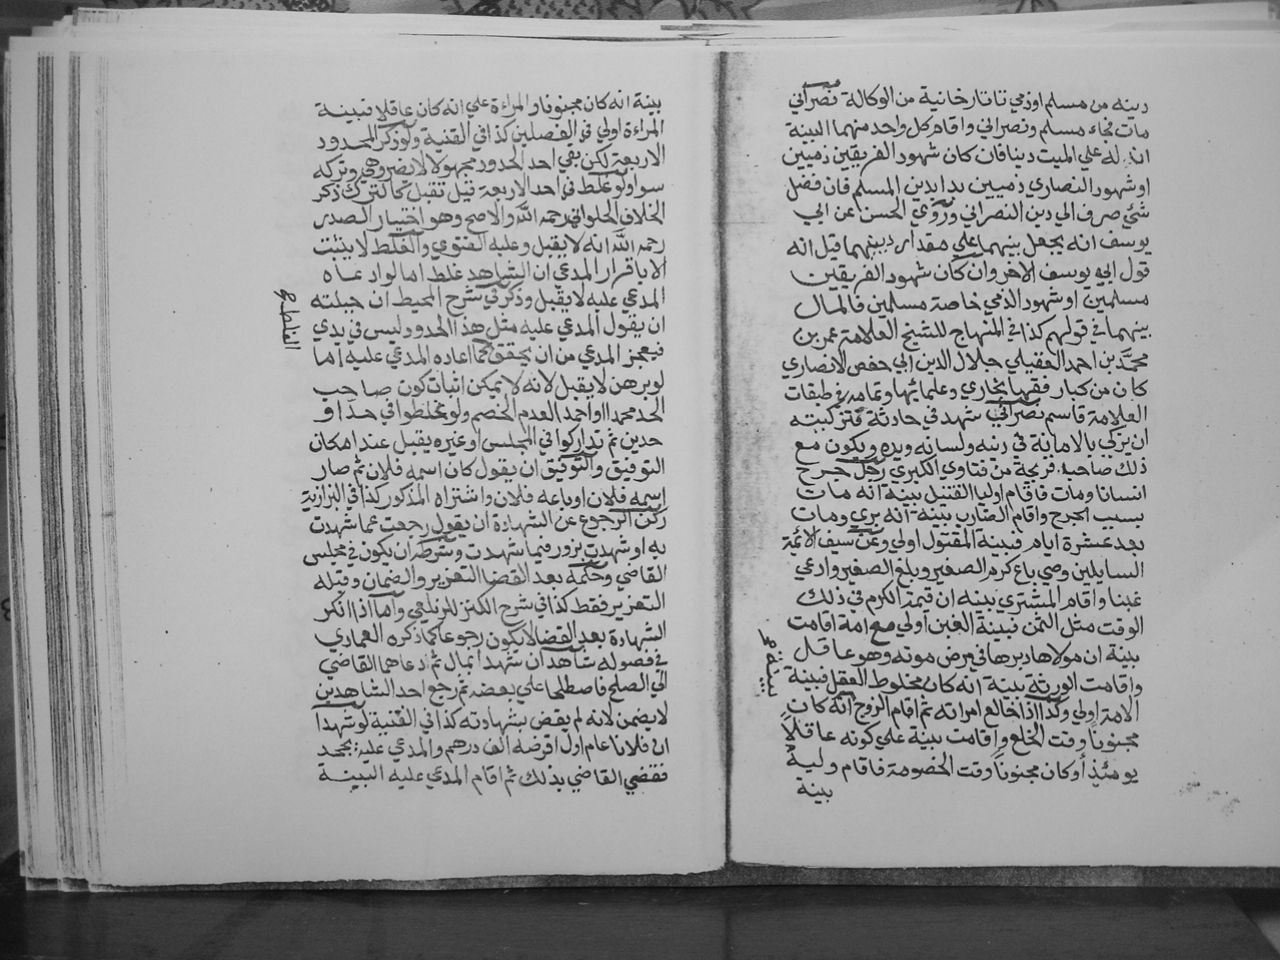 دينه من مسلم اوذمي تاتارخانية من الوكالة نصراني
مات فجاء مسلم ونصراني واقام كل واحد منهما البينة
ان له علي الميت دينا فان كان شهود الفريقين ذميين
او شهود النصاري ذميين بدا بدين المسلم فان فضل
شئ صرف الي دين النصراني وروي الحسن عن ابي
يوسف انه يجعل بينهما علي مقدار دينهما قيل انه
قول ابي يوسف الاخر وان كان شهود الفريقين
مسلمين او شهود الذمي خاصة مسلمين فالمال
بينهما في قولهم كذا في المنهاج للشيخ العلامة عمر بن
محمد بن احمد العقيلي جلال الدين ابي حفص الانصاري
كان من كبار فقهاء بخاري وعلمائها وتمامه في طبقات
العلامة قاسم نصراني شهد في حادثة فتزكيته
ان يزكي بالامانة في دينه ولسانه ويده ويكون مع
ذلك صاحب من فتاوي الكبري رجل جرح
انسانا ومات فاقام اوليا القتيل بينة انه مات
بسبب الجرح واقام الضارب بينة انه بري ومات
بعد عشرة ايام فبينة المقتول اولي وعن سيف الائمة
السايلين وصي باع كرم الصغير وبلغ الصغير وادعي
غبنا واقام المشتري بينه ان قيمة الكرم في ذلك
الوقت مثل الثمن فبينة الغبن اولي مع امة اقامت
بينة ان مولاها دبرها في مرض موته وهو عاقل
واقامت الورثة بينة انه كان مخلوط العقل فبينة
الامة اولي وكذا اذا خالع امراته ثم اقام الزوج انه كان
مجنونا وقت الخلع واقامت بينة علي كونه عاقلا
يومئذ أو كان مجنونا وقت الخصومة فاقام وليه
بينة
بينة
بينة انه كان مجنونا والمراءة علي انه كان عاقلا فبينة
المراءة اولي في الفصلين كذا في القنية ولو ذكر الحدود
الاربعة لكن بقي احد الحدود مجهولا لا يضر وهي وتركه
سوا ولو غلط في احد الاربعة قيل تقبل كما لو ترك ذكر
الخلاف الحلواني رحمه الله والاصح وهو اختيار الصدر
رحمه الله انه لا يقبل وعليه الفتوي والغلط لا يثبت
الا باقرار المدعي ان الشاهد غلط اما لو ادعاه
المدعي عليه لا يقبل وذكر في شرح المحيط ان حيلته
ان يقول المدعي عليه مثل هذا الحدود ليس في يدي
فيعجز المدعي من ان يحقق ما ادعاه المدعي عليه اما
لو برهن لا يقبل لانه لا يمكن اثبات كون صاحب
الحد محمدا او احمد العدم الخصم ولو غلطوا في حد او
حدين ثم تداركوا في المجلس او غيره يقبل عند امكان
التوفيق والتوفيق ان يقول كان اسمه فلان ثم صار
اسمه فلان او باعه فلان واشتراه المذكور كذا في البزازية
ركن الرجوع عن الشهادة ان يقول رجعت عما شهدت
به او شهدت بزور فيما شهدت وشرطه ان يكون في مجلس
القاضي وحكمه بعد القضا التعزير والضمان وقبله
التعزير فقط كذا في شرح الكنز للزيلعي واما اذا انكر
الشهادة بعد القضا لا يكون رجوعا كما ذكره العمادي
في فصوله شاهدان شهدا بمال ثم دعاهما القاضي
الي الصلح فاصطلحا علي بعضه ثم رجع احد الشاهدين
لا يضمن لانه لم يقض بشهادته كذا في القنية لو شهدا
ان فلانا عام اول اقرضه الف درهم والمدعي عليه يجحد
فقضي القاضي بذلك ثم اقام المدعي عليه البينة
الغلط